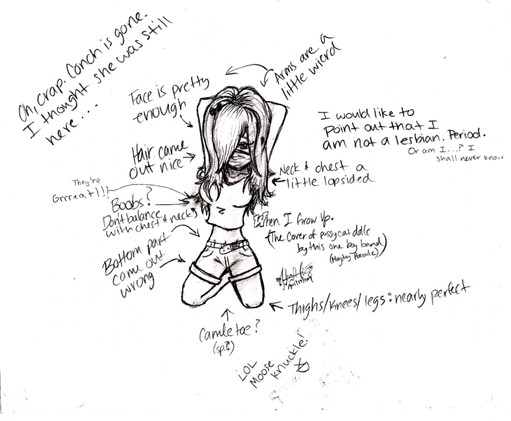 Oh, crap. Conch is gone.
I thought she was still
here....
Face is pretty
enough
Arms are a
little wierd
Hair came
out nice
I would like to
point out that I
am not a lesbian. Period.
Or am I...? I
shall never know
Neck & chest a
little lopsided.
They're
Grrreat!!!
Boobs?
Don't balance
with chest & neck
When I Grow Up.
(The cover of pussycat dolls
by this one boy band)
(Mayday Parade)
Bottom part
came out
wrong
Thighs/knees/legs: nearly perfect
Camletoe?
(sp?)
LOL
Moose
knuckle!